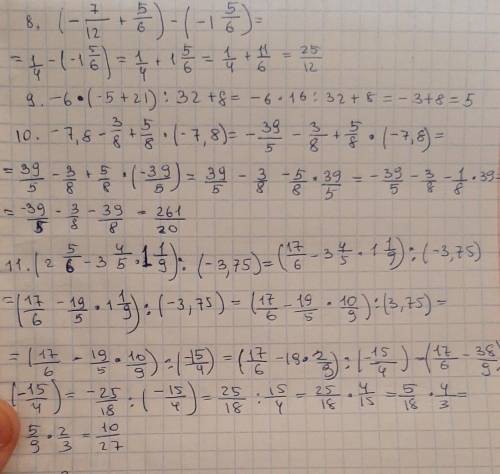 8. (-7/12 + 5/6) - (-1 5/6) =
= 1/4 - (-1 5/6) = 1/4 + 1 5/6 = 1/4 + 11/6 = 25/12
9. -6 • (-5 + 21) : 32 + 8 = -6 • 16 : 32 + 8 = -3 + 8 = 5
10. -7,8 - 3/8 + 5/8 • (-7,8) = -39/5 - 3/8 + 5/8 • (-7,8) =
= 39/5 - 3/8 + 5/8 • (-39/5) = 39/5 - 3/8 - 5/8 • 39/5 = -39/5 - 3/8 - 1/8 • 39 -
= -39/5 - 3/8 - 39/8 = 261/20
11. (2 5/6 - 3 4/5 • 1 1/9) : (-3,75) = (17/6 - 3 4/5 • 1 1/9) : (-3,75)
= (17/6 - 19/5 • 1 1/9) : (-3,75) = (17/6 - 19/5 • 10/9) : (3,75) =
= (17/6 - 19/5 • 10/9) : (15/4) = (17/6 - 18 • 2/9) : (-15/4) - (17/6 - 38/9) :
(-15/4) = -25/18 : (-15/4) = 25/18 : 15/4 = 25/18 • 4/15 = 5/18 • 4/3 =
5/9 • 2/3 = 10/27